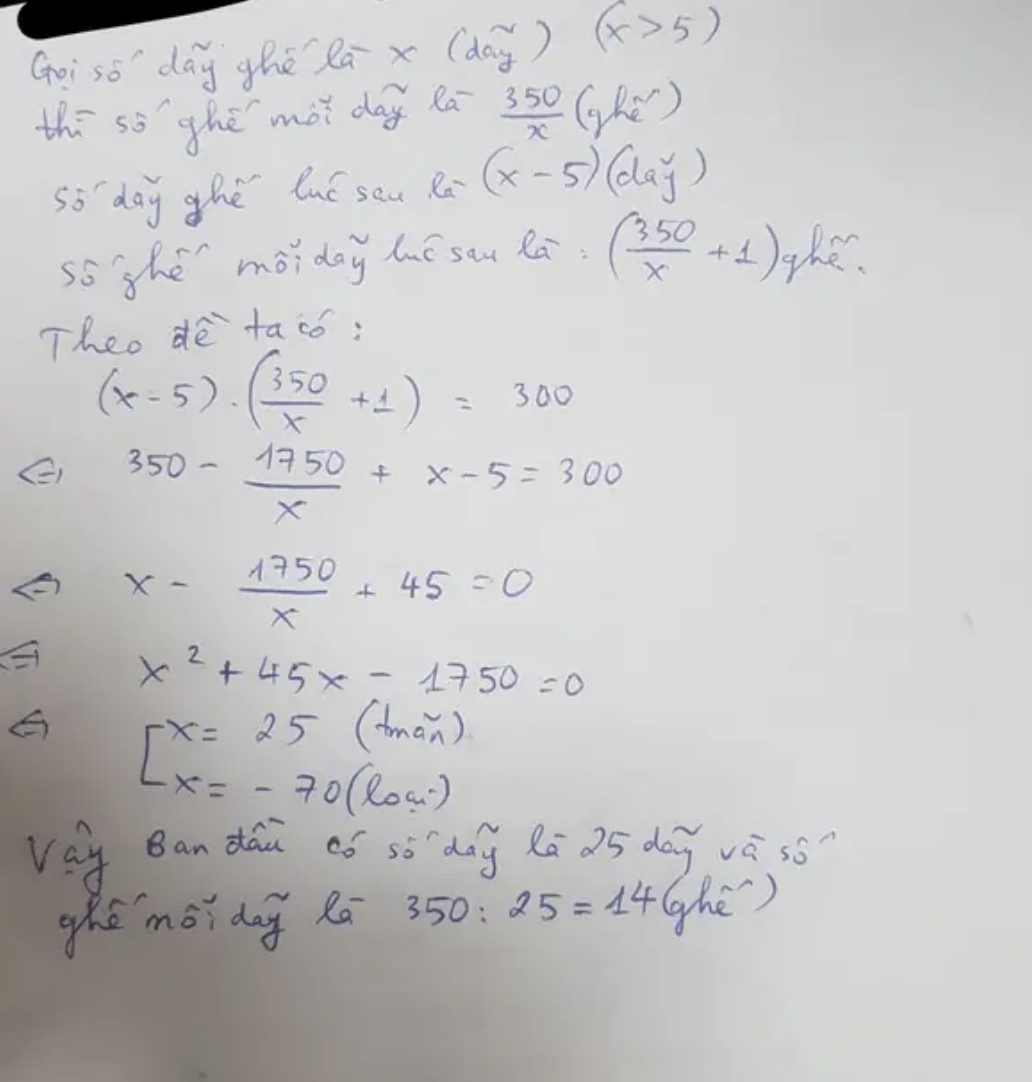 Gọi số dãy ghế là x (dãy) (x > 5)
thì số ghế mỗi dãy là 350/x (ghế)
số dãy ghế lúc sau là (x - 5) (dãy)
số ghế mỗi dãy lúc sau là : (350/x + 1) ghế.
Theo đề ta có :
(x - 5) . (350/x + 1) = 300
⇔ 350 - 1750/x + x - 5 = 300
⇔ x - 1750/x + 45 = 0
⇔ x² + 45x - 1750 = 0
⇔ [x = 25 (tmãn)
x = - 70 (loại)
Vậy Ban đầu có số dãy là 25 dãy và số
ghế mỗi dãy là 350 : 25 = 14 (ghế)